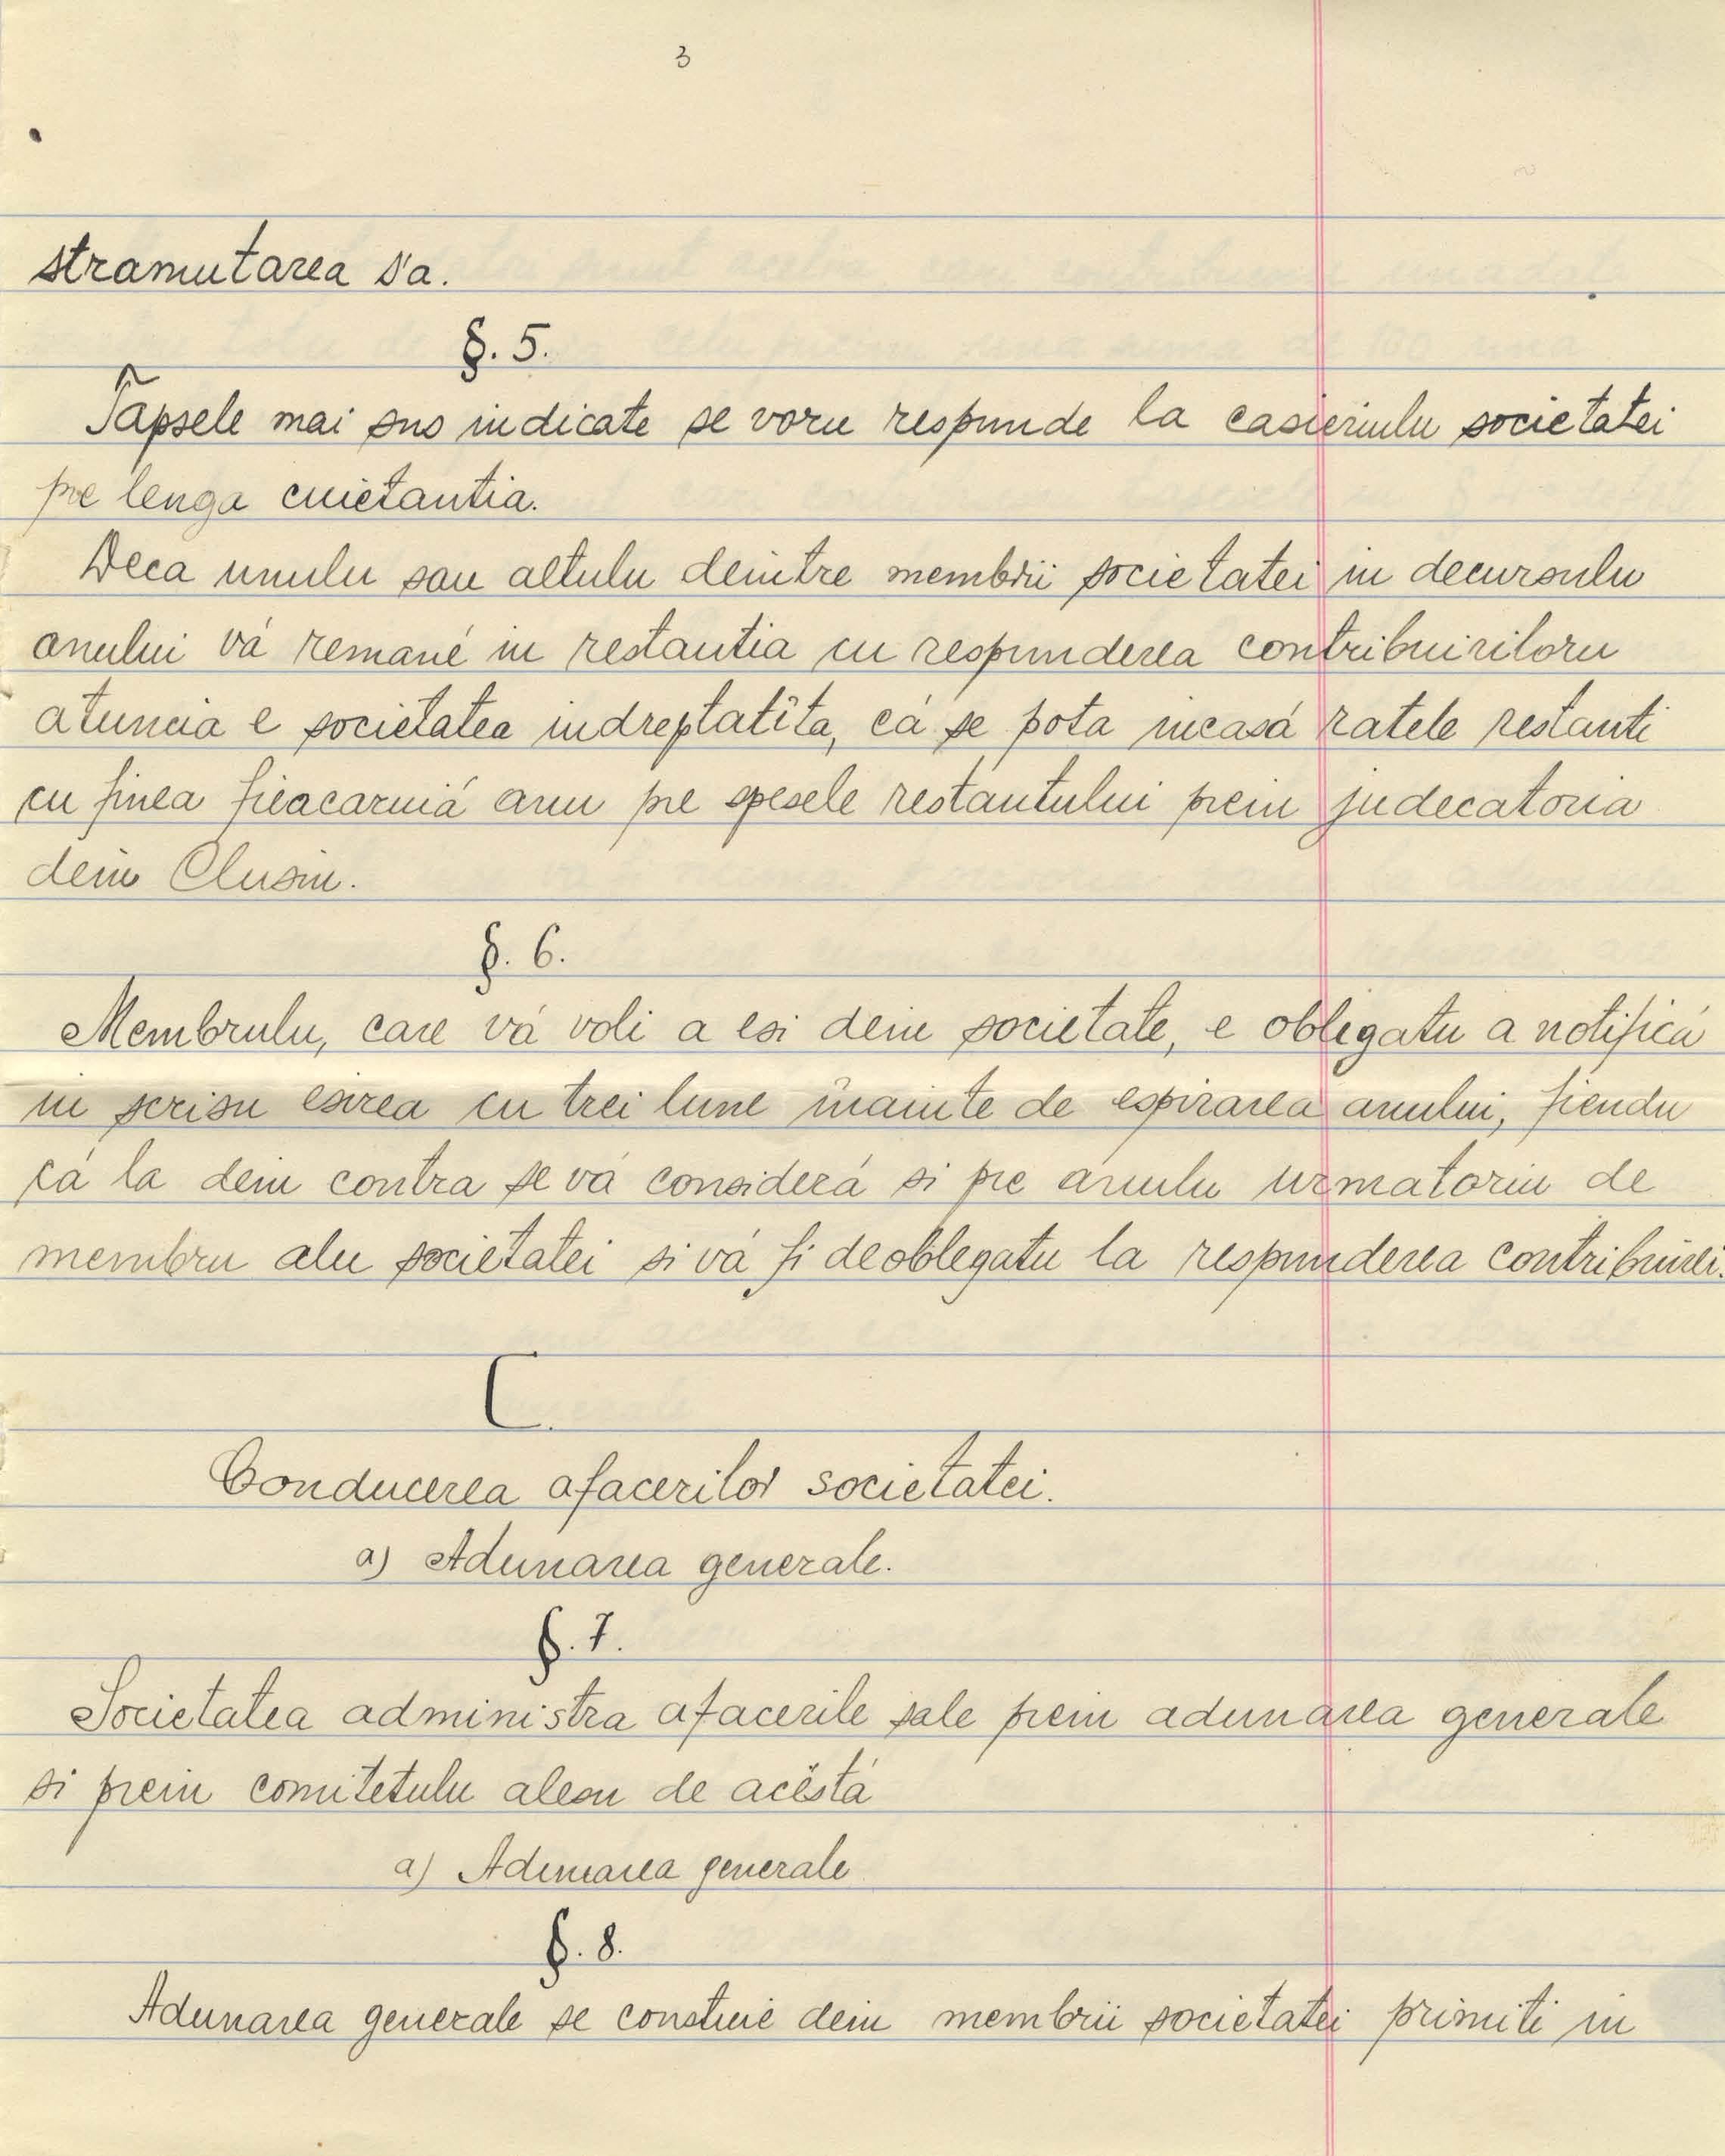 3
stramutarea s'a.
§. 5.
Tapsele mai sus indicate se voru respunde la casieriulu societatei
pre lenga cuietantia.
Deca unulu sau altulu deintre membrii societatei in decursulu
anului vá remané in restantia cu respunderea contribuiriloru
atuncia e societatea indreptatîta, cá se pota incasá ratele restanti
cu finea fieacaruiá anu pre spesele restantului prein judecatoria
dein Clusiu.
§. 6.
Membrulu, care vá voli a esi dein societate, e oblegatu a notificá
in scrisu esirea cu trei lune inainte de espirarea anului, fiendu
cá la dein contra se vá considerá si pre anulu urmatoriu de
membru alu societatei si vá fi deoblegatu la respunderea contribuirei.
C.
Conducerea afacerilor societatei.
a) Adunarea generale.
§. 7.
Societatea administra afacerile sale prein adunarea generale
si prein comitetulu alesu de acésta
a) Adunarea generale
§. 8.
Adunarea generale se constuie dein membrii societatei primiti in